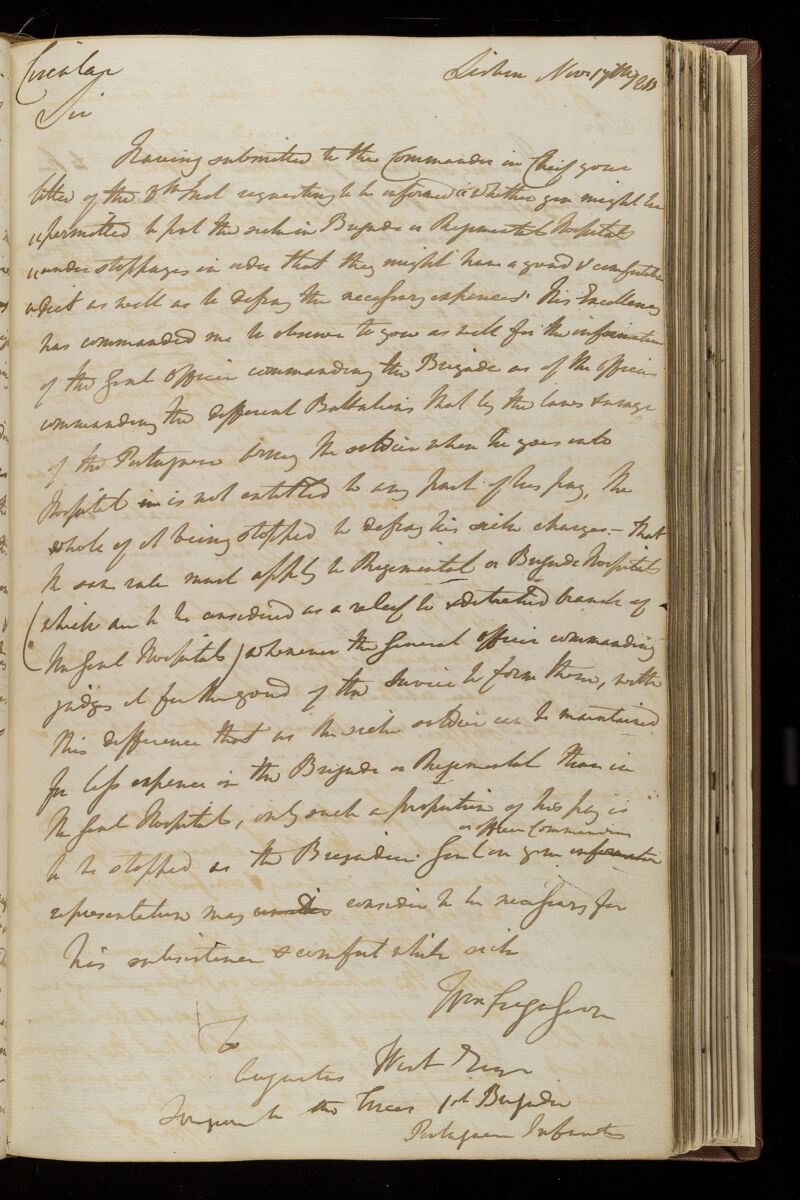 Circular
Lisbon Novr 17th 1810
Sir
Having submitted to the Commander in Chief your
letter of the 8th Inst requesting to be informed "whether you might be
"permitted to put the sick in Brigade or Regimental Hospitals
"under stoppages in order that they might have a good & comfortable
"diet as well as to defray the necessary expences. His Excellency
has commanded me to observe to you as well for the information
of the Genl Officer commanding the Brigade as of the Officers
commanding the different Battalions that by the laws & usage
of the Portuguese Army the soldier when he goes into
Hospital is not entitled to any part of his pay, the
whole of it being stopped to defray his sick charges - that
the same rule must apply to Regimental or Brigade Hospitals
(which are to be considered as a relief to & detached branch of
the Genl Hospitals) whenever the General officer commanding
judges it for the good of the Service to form them, with
this difference that as the sick soldier can be maintained
for less expence in the Brigade or Regimental than in
the Genl Hospitals, only such a proportion of his pay is
or Officer Commanding
to be stopped as the Brigadier Genl on your information
representation may consider to be necessary for
his subsistence & comfort while sick
Wm Fergusson
To
Augustus West Esqr
Surgeon to the Forces 1st Brigade
Portuguese Infantry